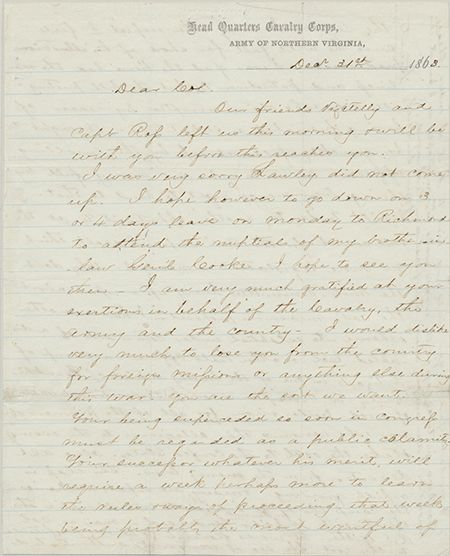 Head Quarters Cavalry Corps,
ARMY OF NORTHERN VIRGINIA,
Decr 31st 1863.
Dear Col.
Our friends Vizetelly and
Capt Ross left us this morning & will be
with you before this reaches you.
I was very sorry Lawley did not come
up. I hope however to go down on 3
or 4 days leave on Monday to Richmond
to attend the nuptials of my brother in
law Genl Cooke. I hope to see you
there - I am very much gratified at your
exertions in behalf of the Cavalry, the
army and the country - I would dislike
very much to lose you from the country
for foreign missions or anything else during
this war. You are the sort we want.
Your being superceded so soon in congress
must be regarded as a public calamity.
Your successor whatever his merit, will
require a week perhaps more to learn
the rules & ways of proceeding that week
being probably the most eventful of